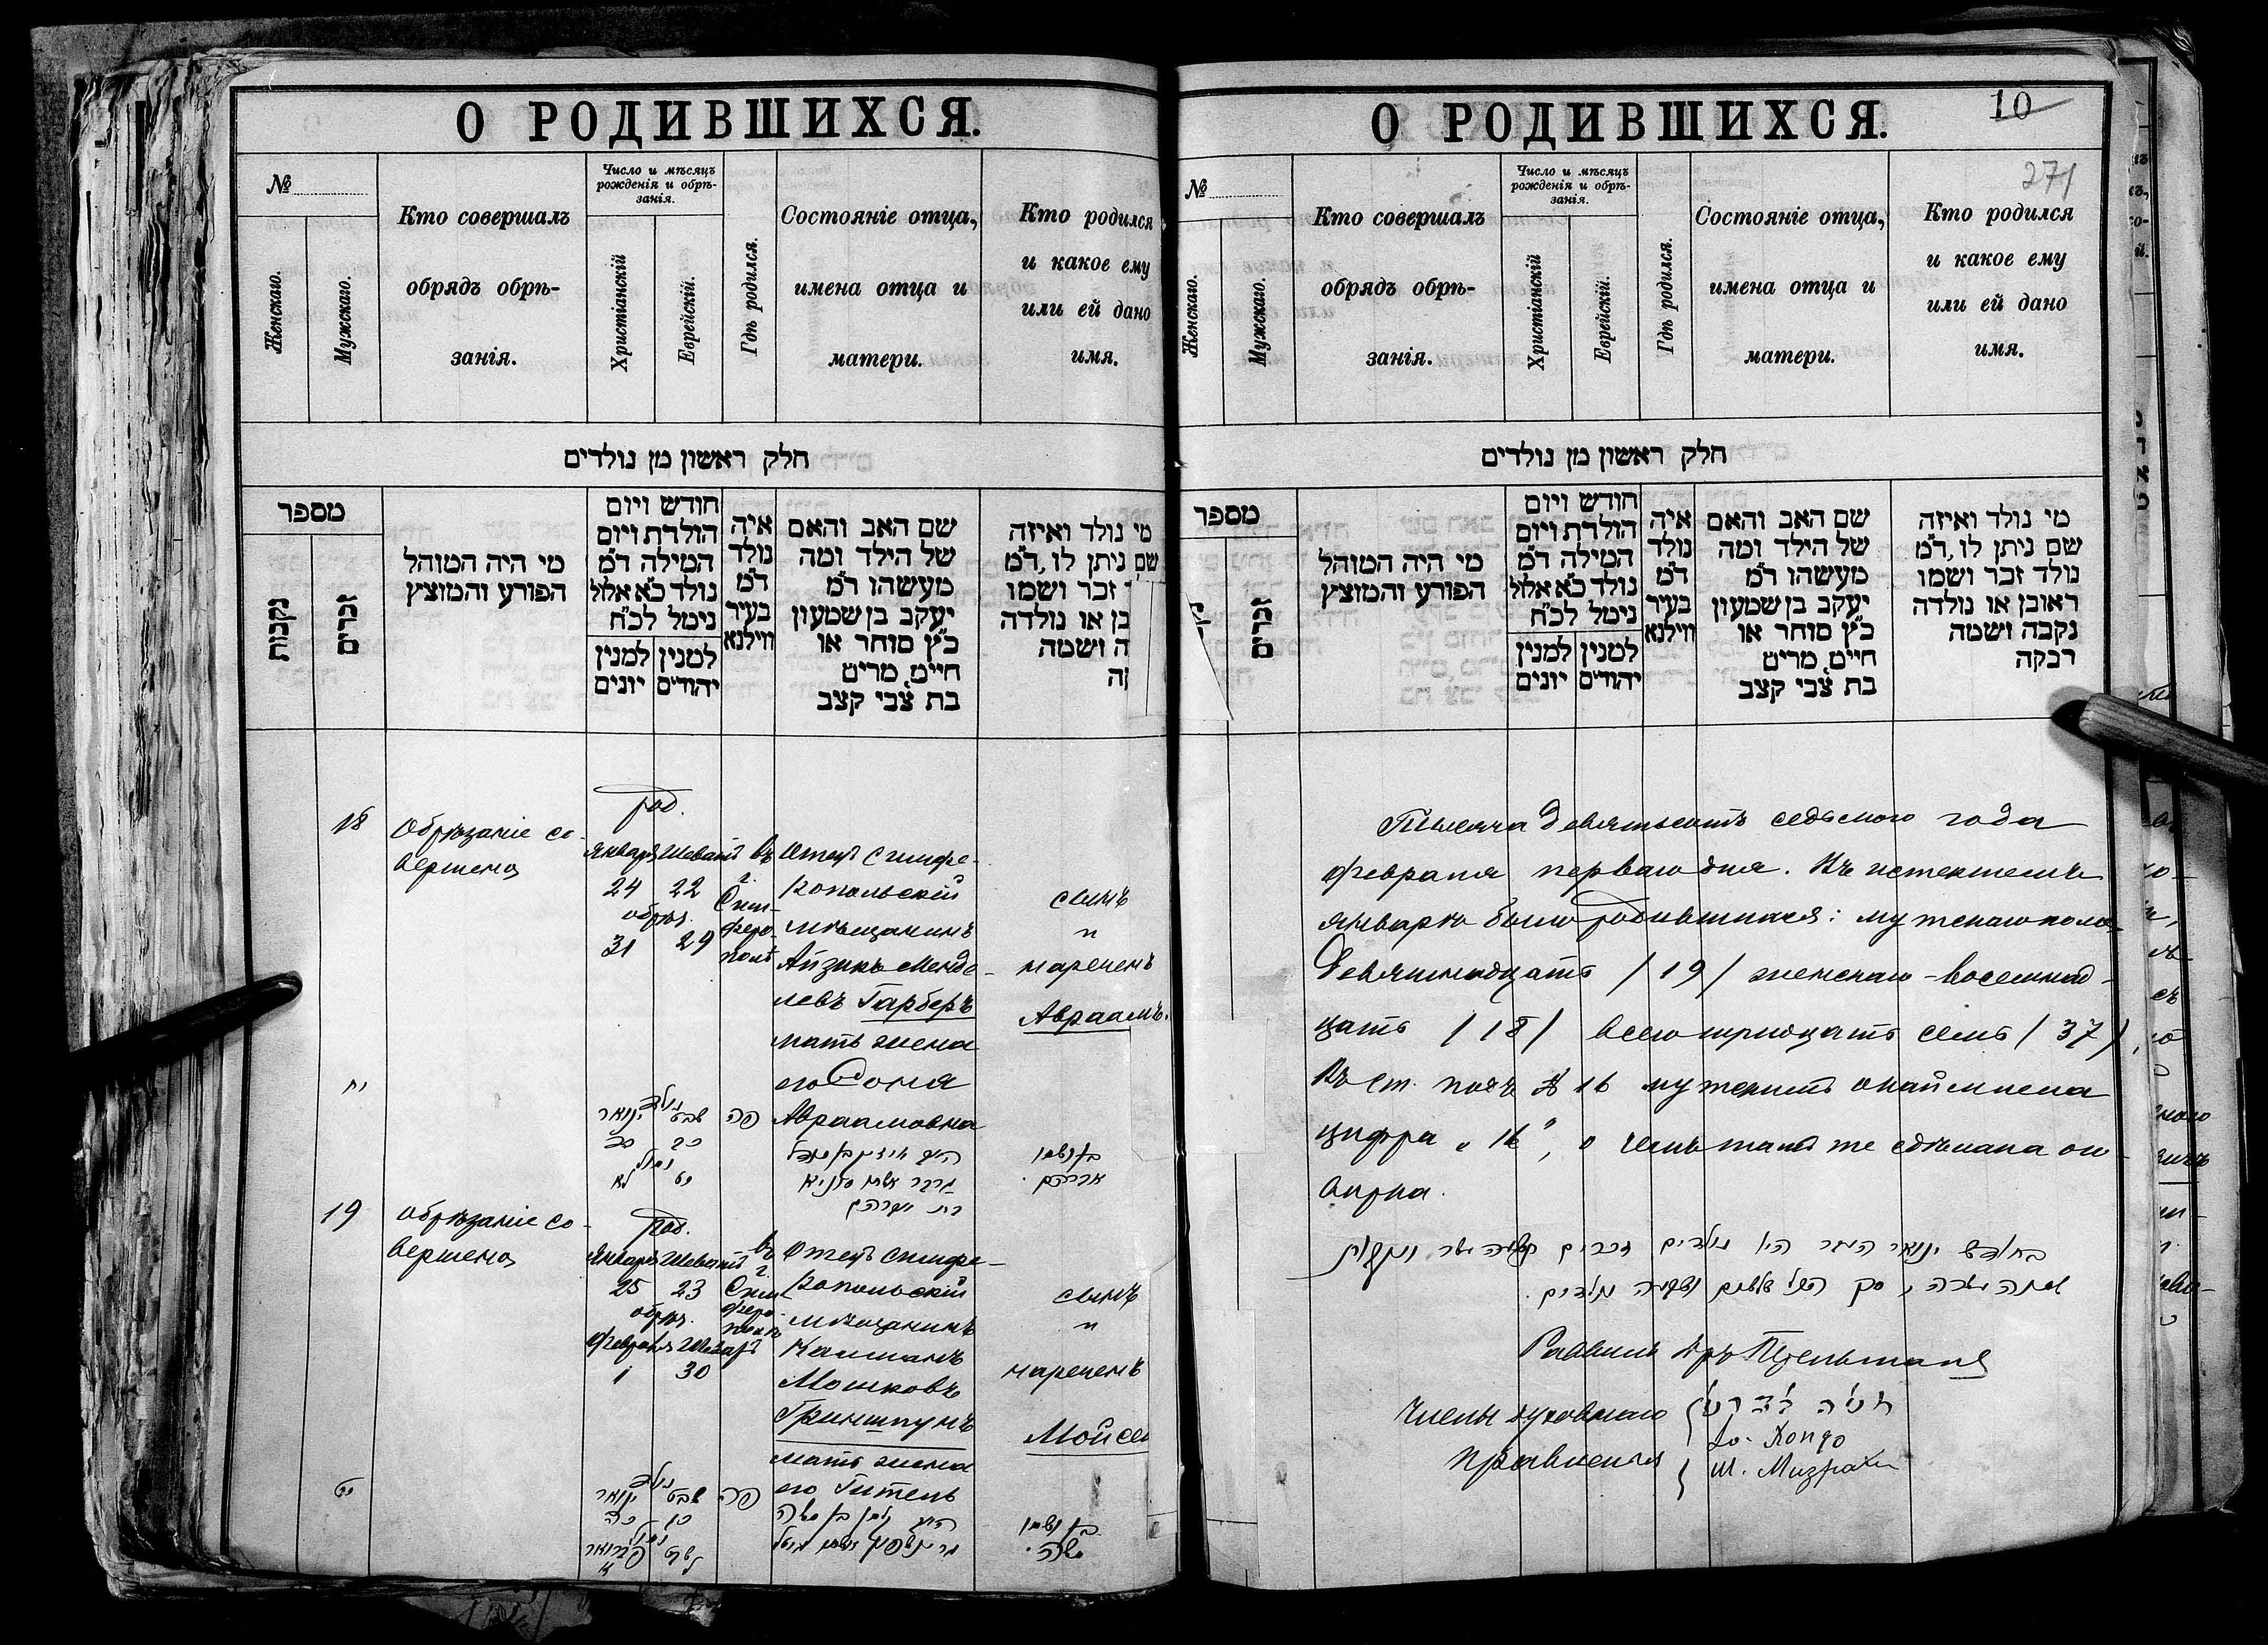 О РОДИВШИХСЯ.
№
Женскаго.
Мужскаго.
Кто совершалъ
обрядъ обрѣ-
занія.
Число и мѣсяцъ
рожденія и обрѣ-
занія.
Христіанскій
Еврейскій.
Гдѣ родился.
Состояніе отца,
имена отца и
матери.
Кто родился
и какое ему
или ей дано
имя.
חלק ראשון מן נולדים
מספר
נקבות
זכרים
מי היה המוהל
הפורע והמוצץ
חודש ויום
הולדת ויום
המילה ד״מ
נולד כ״א אלול
נימל לכ״ח
למנין יונים
למנין יהודים
איה
נולד
ד״מ
בעיר
ווילנא
שם האב והאם
של הילד ומה
מעשהו ד״מ
יעקב בן שמעון
כ״ץ סוחר או
חייט, מרים
בת צבי קצב
מי נולד ואיזה
שם ניתן לו, ד״מ
זכר ושמו
בן או נולדה
ה ושמה
18
Обрѣзаніе со-
вершено
род.
Январь Шеватъ
24 22
обрѣз.
31 29
въ
г.
Сим-
феро-
полѣ
Отецъ симфе-
ропольскій
мѣщанинъ
Айзикъ Менде-
левъ Гарберъ
мать жена
его Соня
Авраамовна
сынъ
и
нареченъ
Авраамъ.
יח
נולד
ינואר שבט
כד כב
נימול
לא כט
פה
בן ושמו
אברהם.
19
Обрѣзаніе со-
вершено
род.
Январь Шеватъ
25 23
обрѣз.
Февраль Шеватъ
1 30
въ
г.
Сим
феро-
полѣ
Отецъ симфе-
ропольскій
мѣщанинъ
Калманъ
Мошковъ
Гриншпунъ
мать жена
его Гитель
сынъ
и
нареченъ
Мойсе
יט
נולד
ינואר שבט
כה כג
נימול
פה
בן ושמו
משה.
О РОДИВШИХСЯ.
10
271
№
Женскаго.
Мужскаго.
Кто совершалъ
обрядъ обрѣ-
занія.
Число и мѣсяцъ
рожденія и обрѣ-
занія.
Христіанскій
Еврейскій.
Гдѣ родился.
Состояніе отца,
имена отца и
матери.
Кто родился
и какое ему
или ей дано
имя.
חלק ראשון מן נולדים
מספר
זכרים
מי היה המוהל
הפורע והמוצץ
חודש ויום
הולדת ויום
המילה ד״מ
נולד כ״א אלול
נימל לכ״ח
למנין יונים
למנין יהודים
איה
נולד
ד״מ
בעיר
ווילנא
שם האב והאם
של הילד ומה
מעשהו ד״מ
יעקב בן שמעון
כ״ץ סוחר או
חייט, מרים
בת צבי קצב
מי נולד ואיזה
שם ניתן לו, ד״מ
נולד זכר ושמו
ראובן או נולדה
נקבה ושמה
רבקה
Тысяча девятьсотъ седьмого года
февраля перваго дня. Въ истекшемъ
январѣ было родившихся: мужскаго пола
девятнадцать /19/ женскаго - восемнад-
цать /18/ всего тридцать семь /37/,
Въ ст. подъ № 16 мужскихъ
цифра „16", о чемъ тамъ же сдѣлана ого-
ворка.
בחודש ינואר העבר היו נולדים זכרים תשעה עשר ונקבות
שמנה עשרה, סך הכל שלשים ושבעה נולדים.
Раввинъ
Члены духовнаго
правленія
Ш. Мизрахи